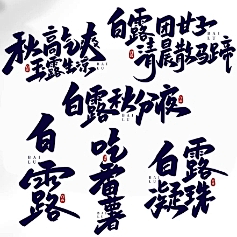 秋高气爽
玉露生凉
白露团甘子
清晨散马蹄
白露秋分夜
白露
吃番薯
白露凝珠
BAI
LU